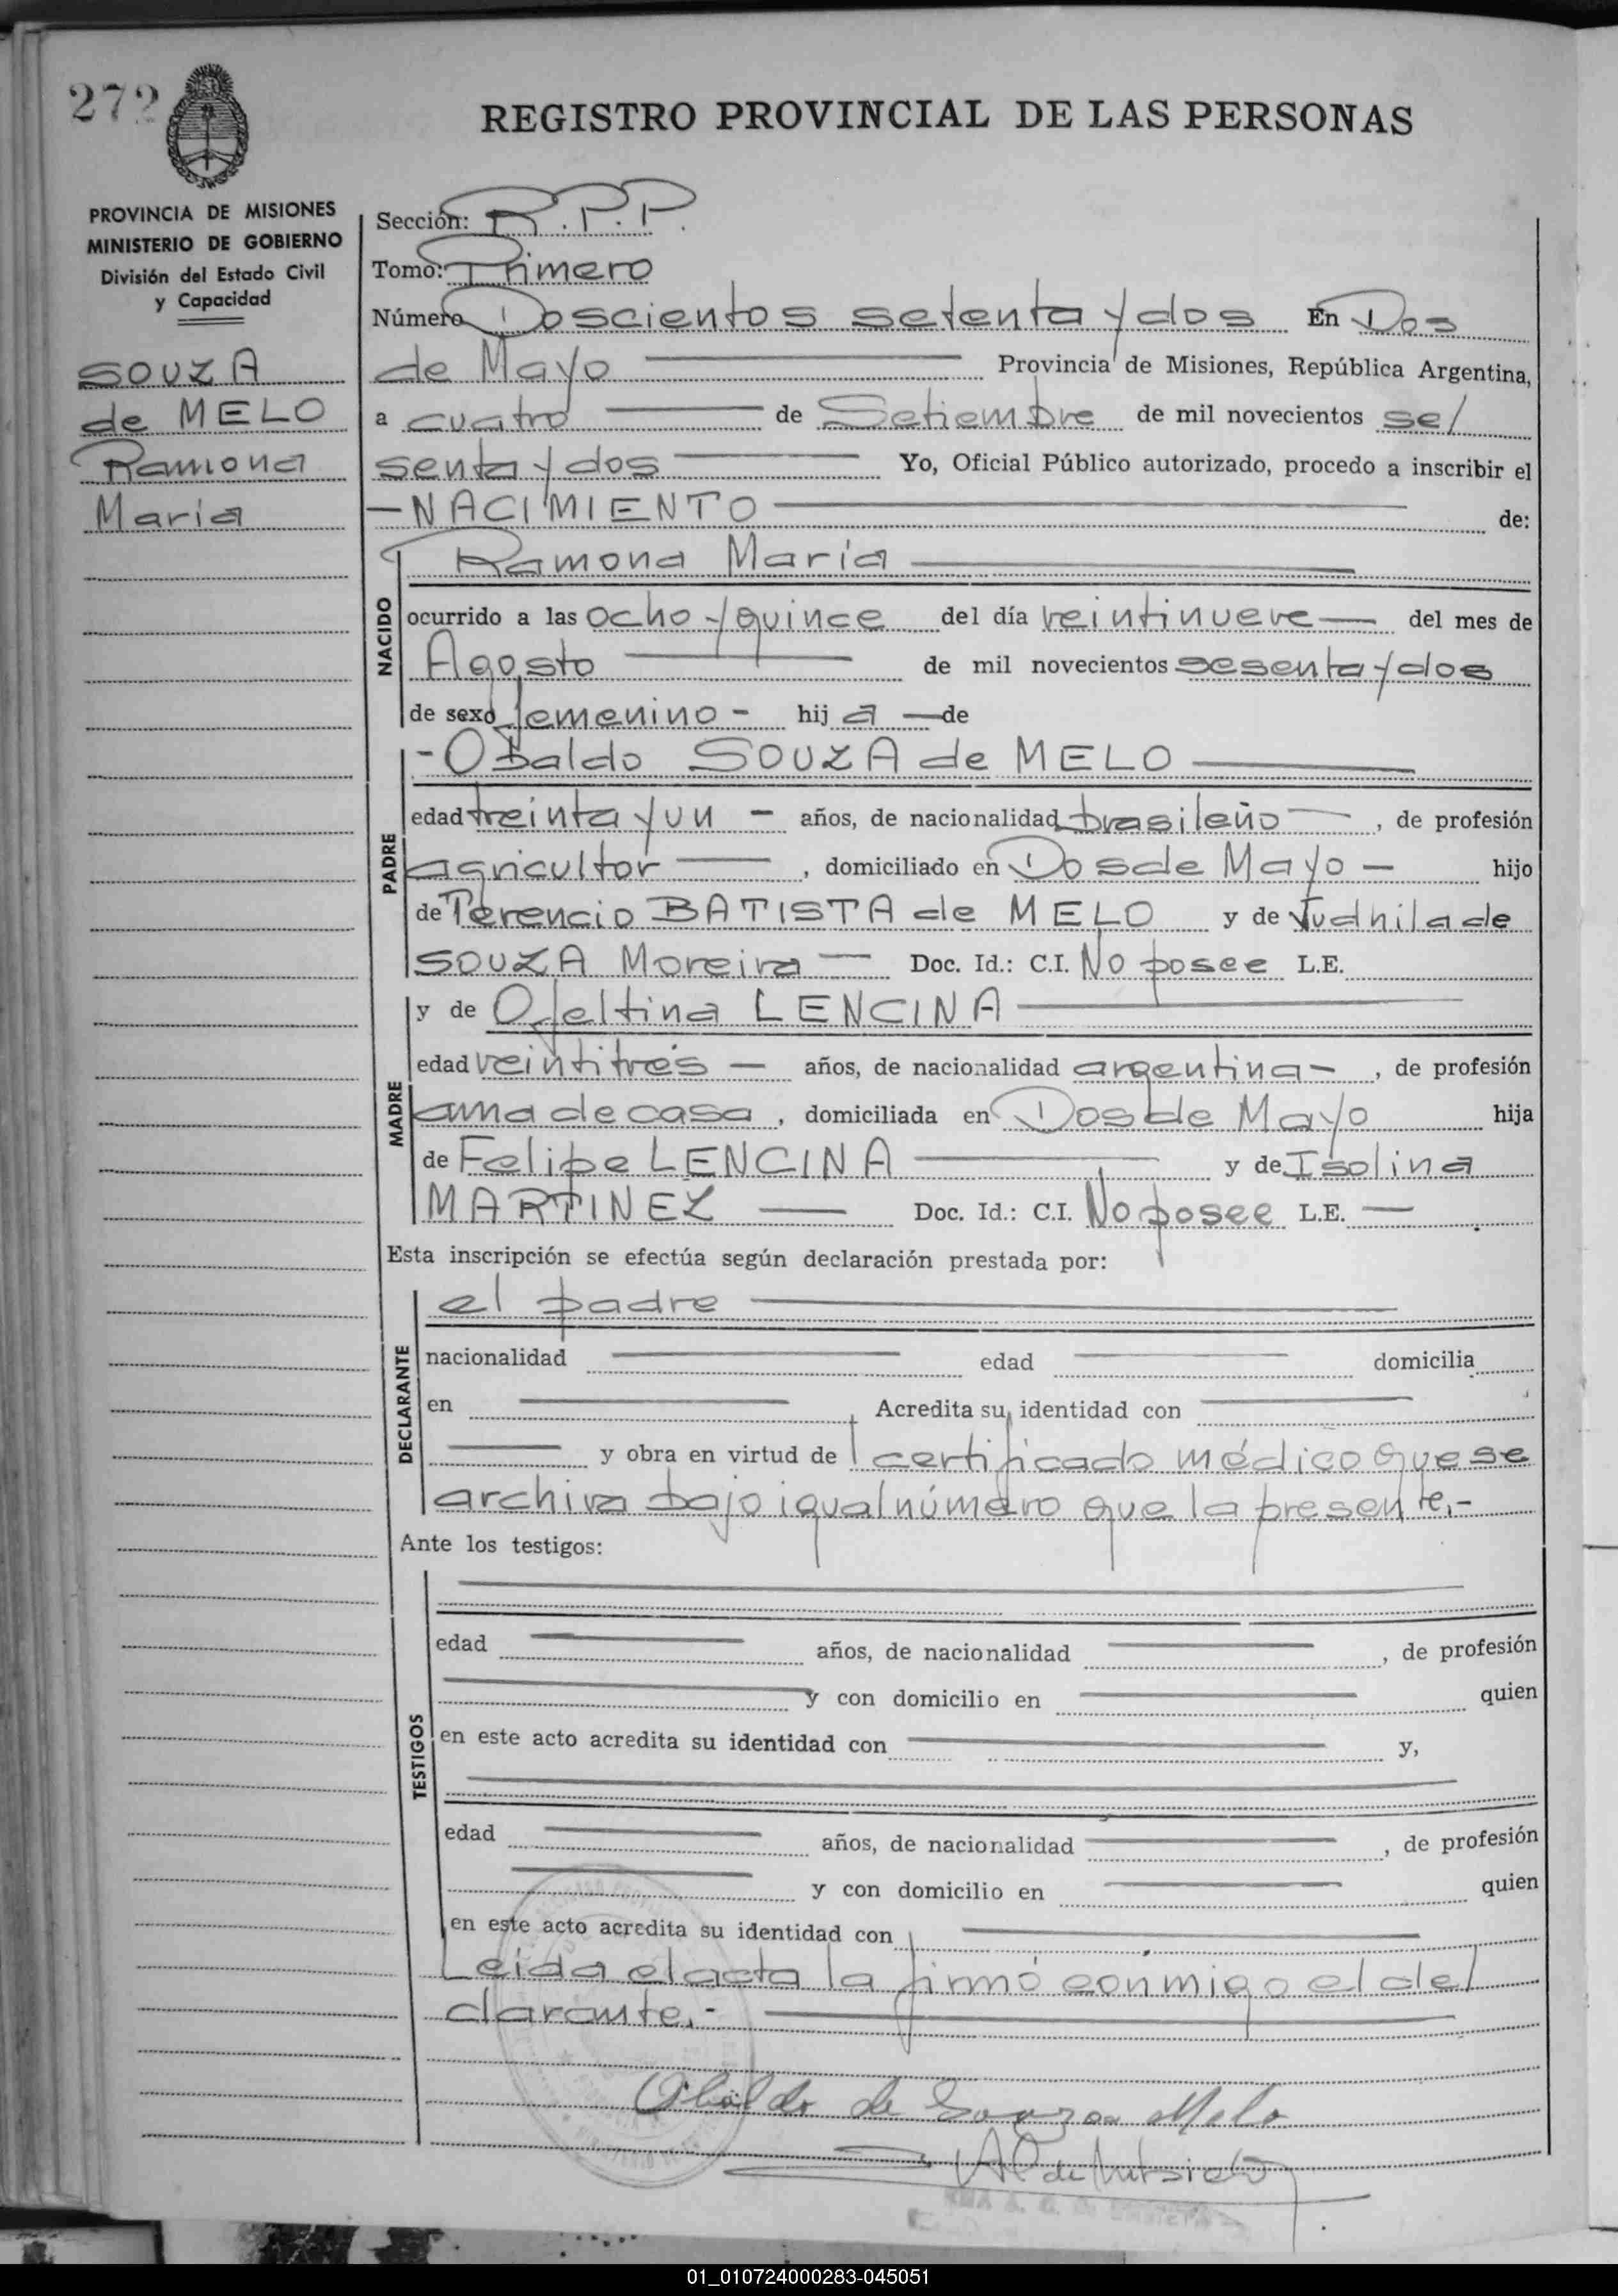 272
REGISTRO PROVINCIAL DE LAS PERSONAS
PROVINCIA DE MISIONES
MINISTERIO DE GOBIERNO
División del Estado Civil
y Capacidad
SOUZA
de MELO
Ramona
Maria
Sección: R.P.P.
Tomo: Primero
Número Doscientos setenta y dos En Dos
de Mayo Provincia de Misiones, República Argentina,
a cuatro de Setiembre de mil novecientos se/
senta y dos Yo, Oficial Público autorizado, procedo a inscribir el
—NACIMIENTO de:
NACIDO
Ramona María
ocurrido a las ocho y quince del día veintinueve del mes de
Agosto de mil novecientos sesenta y dos
de sexo femenino - hij a — de
PADRE
- Obaldo SOUZA de MELO
edad treinta y un - años, de nacionalidad brasileño, de profesión
agricultor, domiciliado en Dos de Mayo - hijo
de Terencio BATISTA de MELO y de Judhila de
SOUZA Moreira Doc. Id.: C.I. No posee L.E.
MADRE
y de Ofeltina LENCINA
edad veintitrés — años, de nacionalidad argentina -, de profesión
ama de casa, domiciliada en Dos de Mayo hija
de Felipe LENCINA y de Isolina
MARTINEZ Doc. Id.: C.I. No posee L.E. —
Esta inscripción se efectúa según declaración prestada por:
DECLARANTE
el padre
nacionalidad edad domicilia
en Acredita su identidad con
y obra en virtud de certificado médico que se
archiva bajo igual número que la presente.-
Ante los testigos:
TESTIGOS
edad años, de nacionalidad , de profesión
y con domicilio en quien
en este acto acredita su identidad con y,
edad años, de nacionalidad , de profesión
y con domicilio en quien
en este acto acredita su identidad con
Leída el acta la firmó conmigo el de/
clarante.-
Obaldo de Souza Melo
01_010724000283-045051